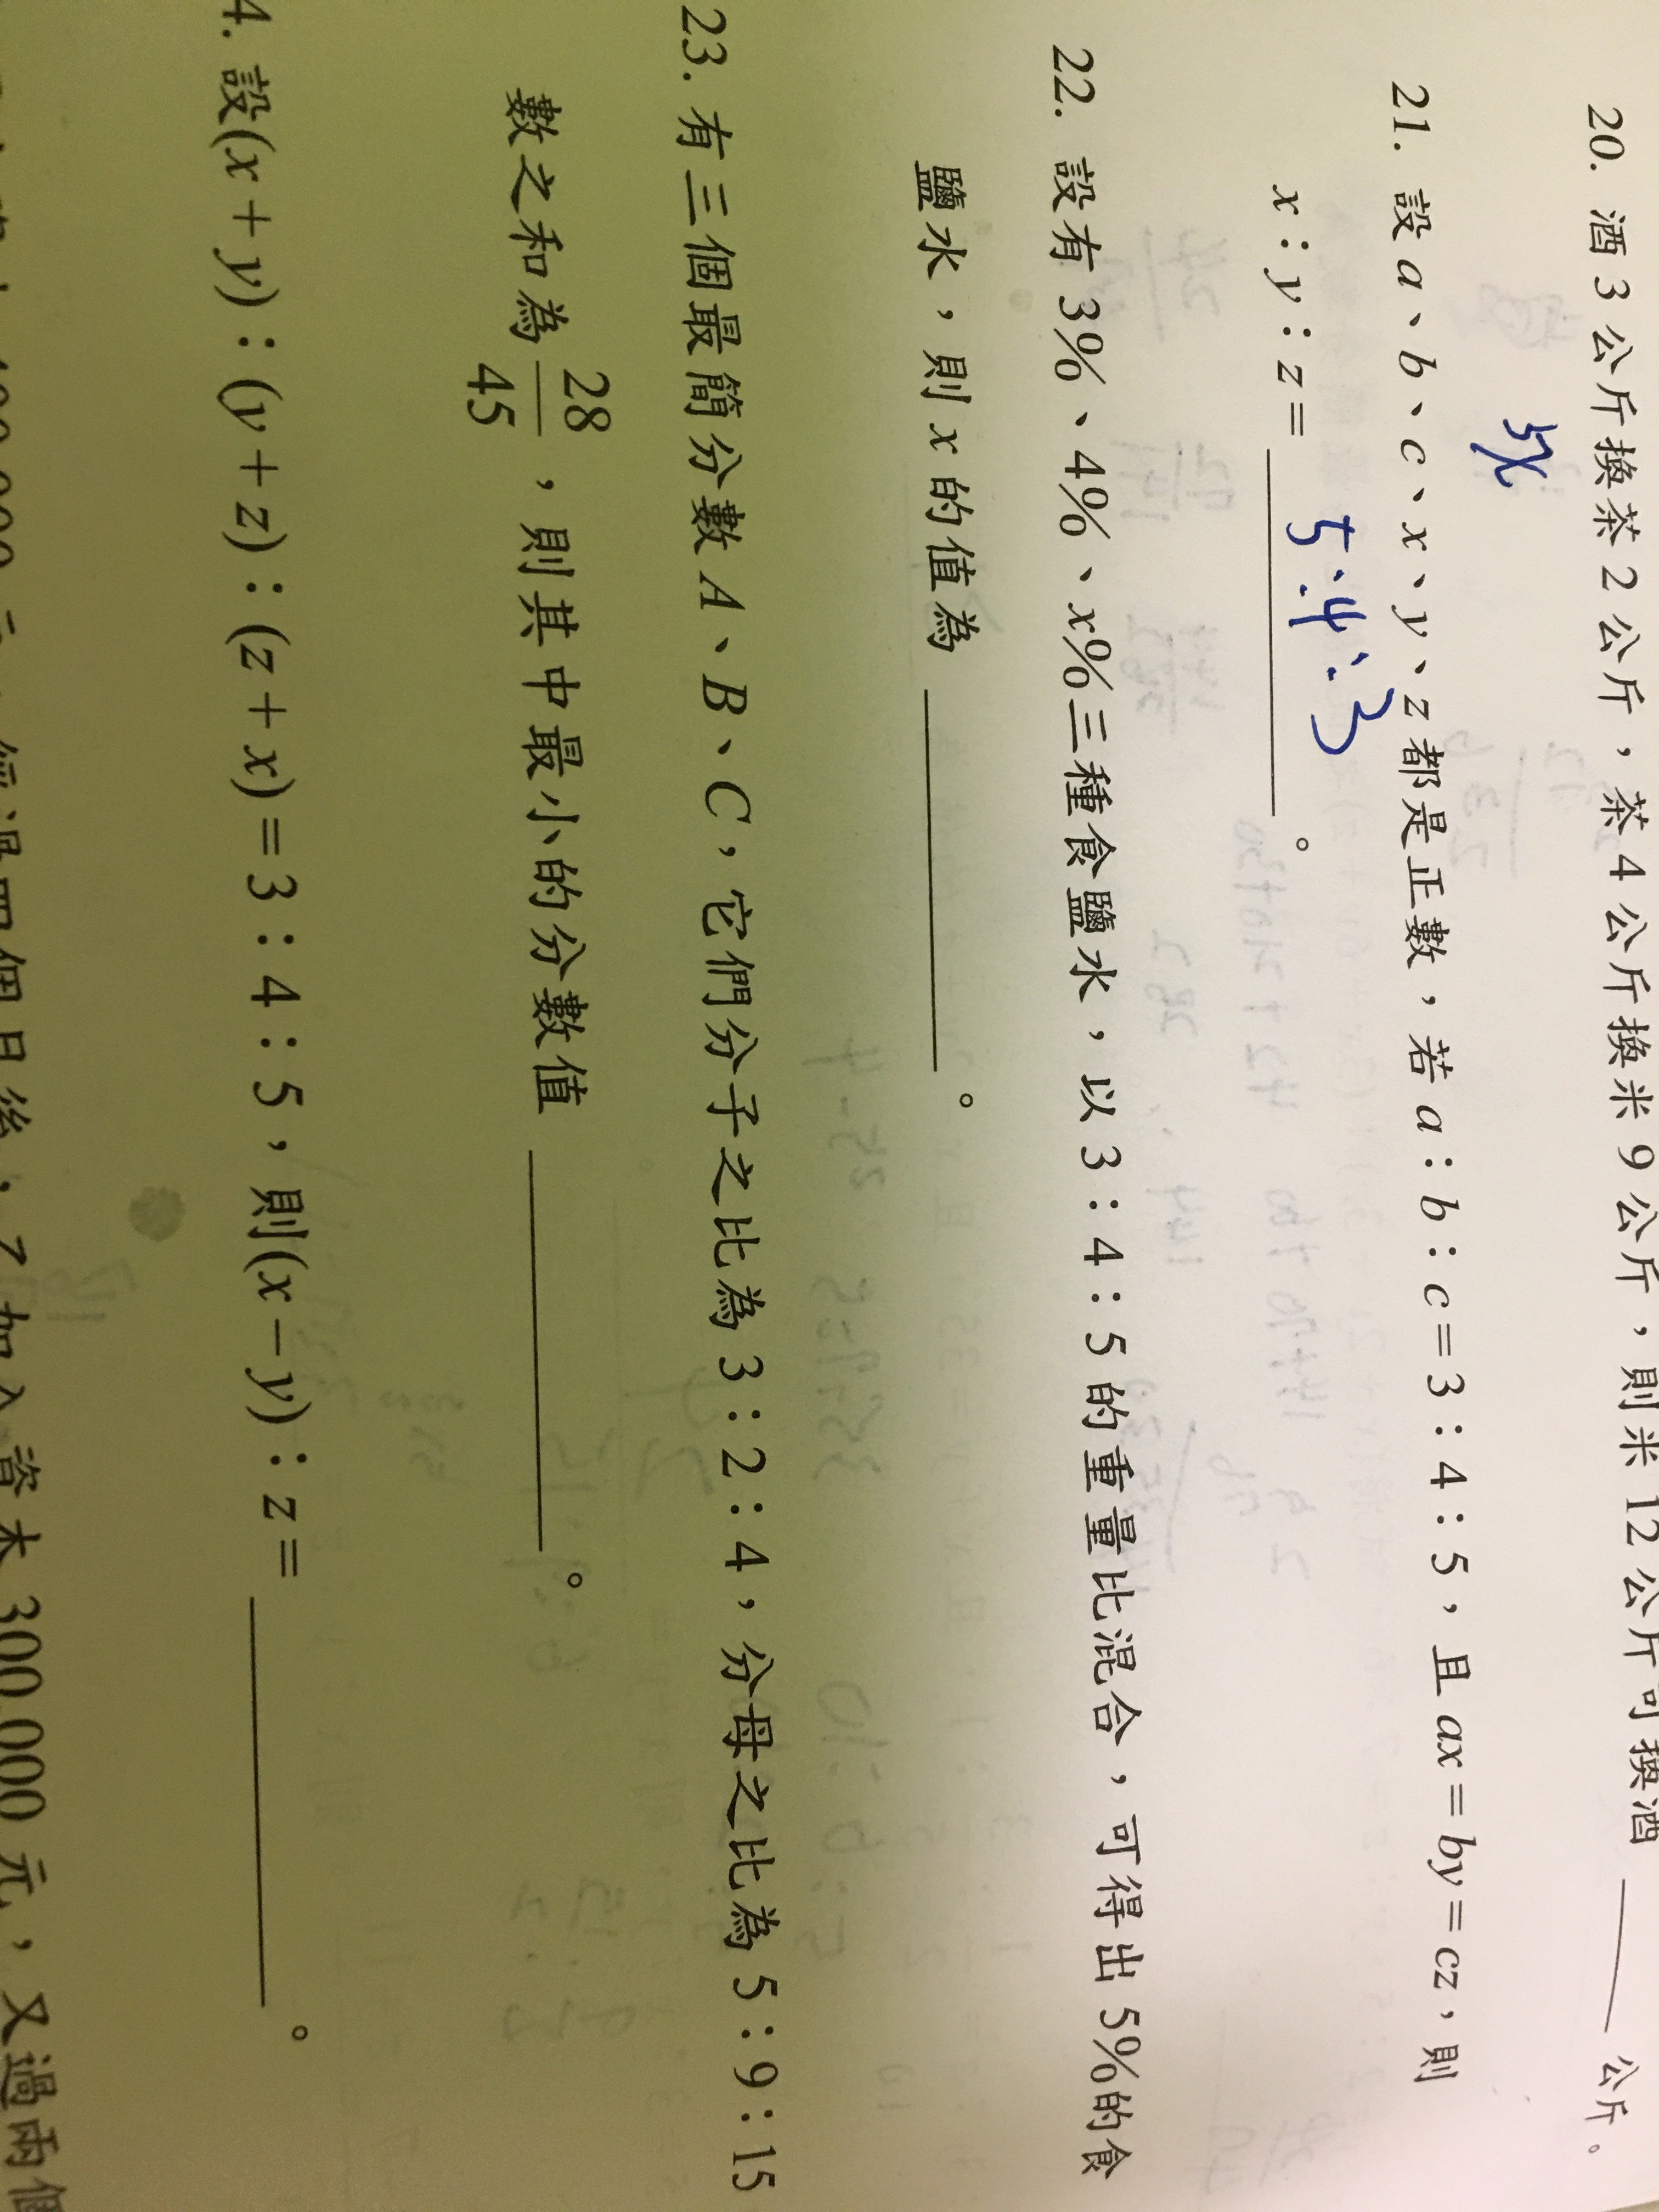 20. 酒 3 公斤換茶 2 公斤，茶 4 公斤換米 9 公斤，則米 12 公斤可換酒 ______ 公斤。
21. 設 a、b、c、x、y、z 都是正數，若 a：b：c＝3：4：5，且 ax＝by＝cz，則
x：y：z＝ 5:4:3 。
22. 設有 3%、4%、x%三種食鹽水，以 3：4：5 的重量比混合，可得出 5%的食
鹽水，則 x 的值為 ______ 。
23. 有三個最簡分數 A、B、C，它們分子之比為 3：2：4，分母之比為 5：9：15
數之和為 28/45，則其中最小的分數值 ______ 。
4. 設(x＋y)：(y＋z)：(z＋x)＝3：4：5，則(x－y)：z＝ ______ 。
個月後，乙加入資本 300,000 元，又過兩個